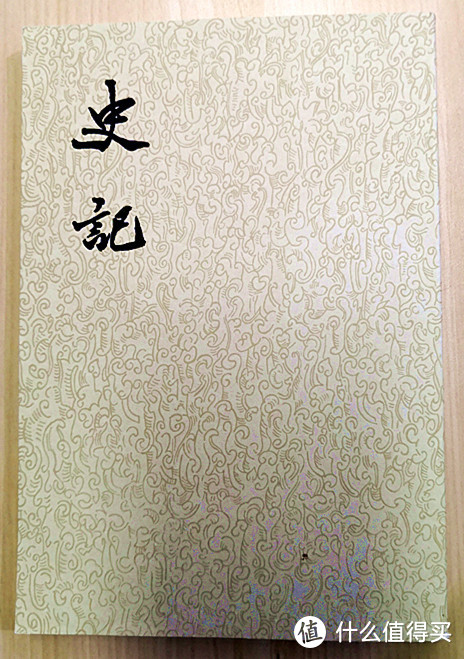 史
記
值 什么值得买